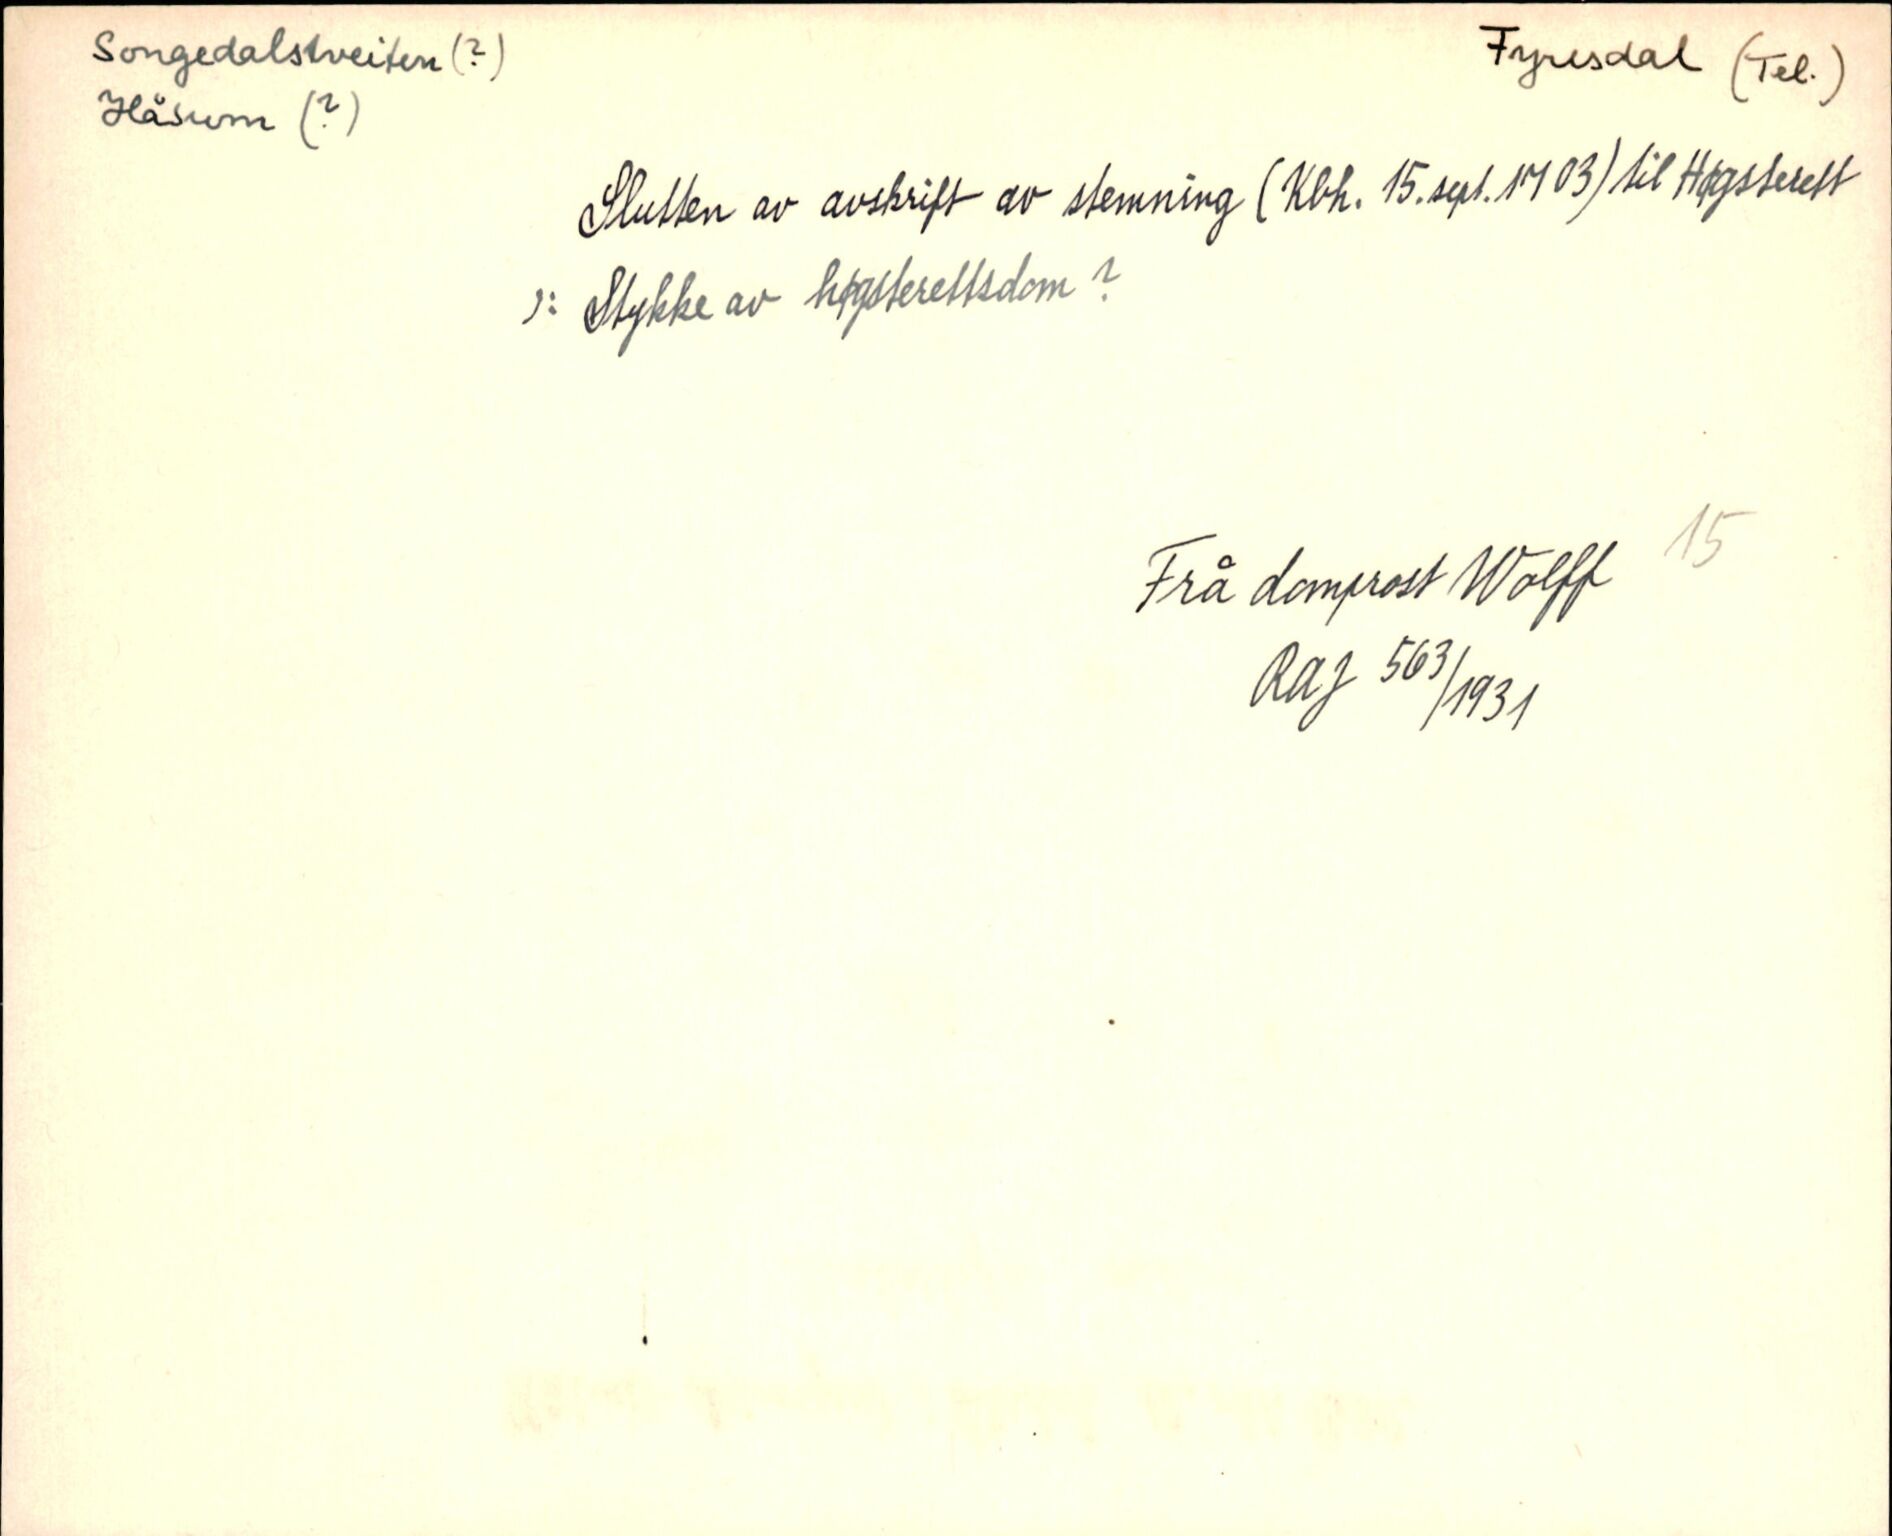 Songedalstveiten (?)
Fyresdal (Tel.)
Håsum (?)
Slutten av avskrift av stemning (Kbh. 15. sept. 1703) til Høgsterett
ɔ: Stykke av høgsterettsdom?
15
Frå domprost Wolff
RAJ 563/1931